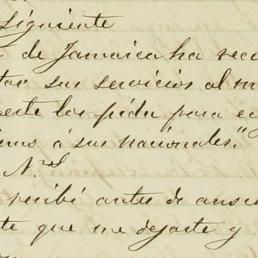 siguiente
de Jamaica ha reci
tar sus servicios al m
este los pida para eq
imo á sus nacionales."
N.
recibi antes de
te que me dejaste y